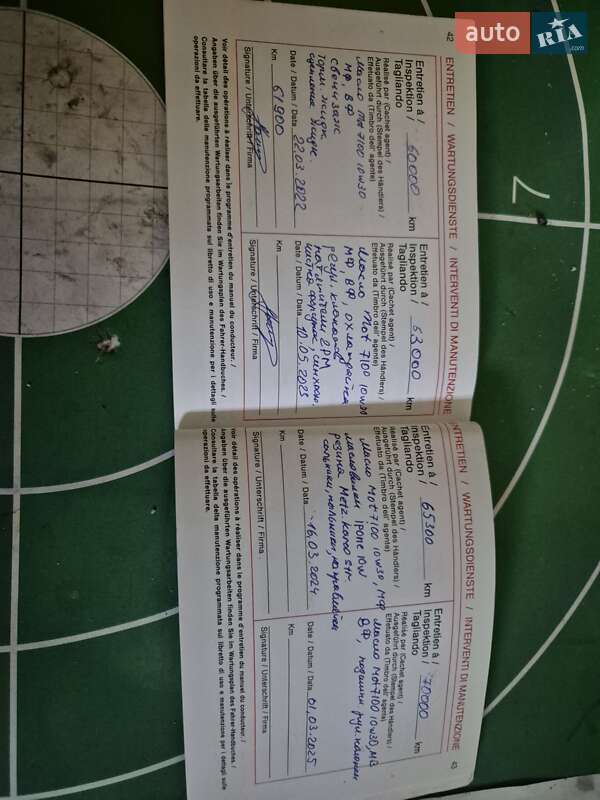 auto RIA.com
42
ENTRETIEN / WARTUNGSDIENSTE / INTERVENTI DI MANUTENZIONE
Entretien à /
Inspektion /
Tagliando
60000 km
Réalisé par (Cachet agent) /
Ausgeführt durch (Stempel des Händlers) /
Effetuato da (Timbro dell' agente)
Масло Mot 7100 10w30
МФ, ВФ
свечи зажи
торм жидк
сцепления жидк
Date / Datum / Data 22.03.2022
Km 61900
Signature / Unterschrift / Firma
Entretien à /
Inspektion /
Tagliando
63000 km
Réalisé par (Cachet agent) /
Ausgeführt durch (Stempel des Händlers) /
Effetuato da (Timbro dell' agente)
Масло Mot 7100 10w30
МФ, ВФ, охл жидкость
регул. клапанов
чистка форсунок, синхрон.
Date / Datum / Data 10.05.2023
Km
Signature / Unterschrift / Firma
Voir détail des opérations à réaliser dans le programme d'entretien du manuel du conducteur. /
Angaben über die ausgeführten Wartungsarbeiten finden Sie im Wartungsplan des Fahrer-Handbuches. /
Consultare la tabella della manutenzione programmata sul libretto di uso e manutenzione per i dettagli sulle
operazioni da effettuare.
43
ENTRETIEN / WARTUNGSDIENSTE / INTERVENTI DI MANUTENZIONE
Entretien à /
Inspektion /
Tagliando
65300 km
Réalisé par (Cachet agent) /
Ausgeführt durch (Stempel des Händlers) /
Effetuato da (Timbro dell' agente)
Масло Mot 7100 10w30, МФ
масло вилки Ipone 10w
резина Metz karoo str
Date / Datum / Data 16.03.2024
Km
Signature / Unterschrift / Firma
Entretien à /
Inspektion /
Tagliando
70000 km
Réalisé par (Cachet agent) /
Ausgeführt durch (Stempel des Händlers) /
Effetuato da (Timbro dell' agente)
Масло Mot 7100 10w30, МФ
ВФ, подшипн рул. колонки
Date / Datum / Data 01.03.2025
Km
Signature / Unterschrift / Firma
Voir détail des opérations à réaliser dans le programme d'entretien du manuel du conducteur. /
Angaben über die ausgeführten Wartungsarbeiten finden Sie im Wartungsplan des Fahrer-Handbuches. /
Consultare la tabella della manutenzione programmata sul libretto di uso e manutenzione per i dettagli sulle
operazioni da effettuare.